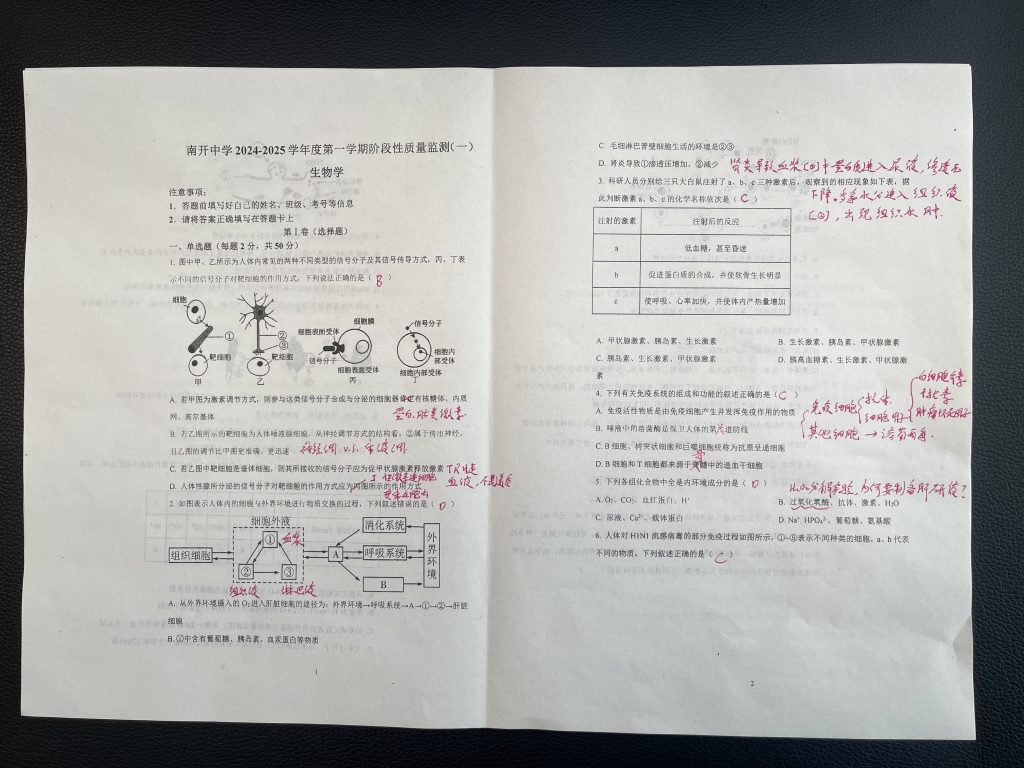 南开中学 2024-2025 学年度第一学期阶段性质量监测(一)
生物学
注意事项：
1．答题前填写好自己的姓名、班级、考号等信息
2．请将答案正确填写在答题卡上
第Ⅰ卷（选择题）
一、单选题（每题 2 分，共 50 分）
1. 图中甲、乙所示为人体内常见的两种不同类型的信号分子及其信号传导方式，丙、丁表
示不同的信号分子对靶细胞的作用方式，下列说法正确的是（ B ）
细胞
①
靶细胞
甲
②
③
靶细胞
乙
细胞膜
细胞表面受体
信号分子
细胞表面受体
丙
信号分子
细胞内
部受体
细胞内部受体
丁
A. 若甲图为激素调节方式，则参与这类信号分子合成与分泌的细胞器一定有核糖体、内质
网、高尔基体
蛋白、肽类激素
B. 若乙图所示的靶细胞为人体唾液腺细胞，从神经调节方式的结构看，②属于传出神经，
且乙图的调节比甲图更准确、更迅速 神经调 v.s. 体液调
C. 若乙图中靶细胞是垂体细胞，则其所接收的信号分子应为促甲状腺激素释放激素 TRH走
血液，不是突
D. 人体性腺所分泌的信号分子对靶细胞的作用方式应为丙图所示的作用方式
丁 性激素进细胞
受体在胞内
2. 如图表示人体内的细胞与外界环境进行物质交换的过程，下列叙述错误的是（ D ）
细胞外液
组织细胞
① 血浆
② 组织液
③ 淋巴液
A
消化系统
呼吸系统
B
外界环境
A. 从外界环境摄入的 O₂进入肝脏细胞的途径为：外界环境→呼吸系统→A→①→②→肝脏
细胞
B. ①中含有葡萄糖、胰岛素、血浆蛋白等物质
1
C. 毛细淋巴管壁细胞生活的环境是②③
D. 肾炎导致①渗透压增加，②减少 肾炎导致血浆[①]中蛋白质进入尿液，渗透压
下降。多余水分进入组织液
[②]，出现组织水肿.
3. 科研人员分别给三只大白鼠注射了 a、b、c 三种激素后，观察到的相应现象如下表，据
此判断激素 a、b、c 的化学名称依次是（ C ）
注射的激素 注射后的反应
a 低血糖，甚至昏迷
b 促进蛋白质的合成，并使软骨生长明显
c 使呼吸、心率加快，并使体内产热量增加
A. 甲状腺激素、胰岛素、生长激素 B. 生长激素、胰岛素、甲状腺激素
C. 胰岛素、生长激素、甲状腺激素 D. 胰高血糖素、生长激素、甲状腺激
素
4. 下列有关免疫系统的组成和功能的叙述正确的是（ C ）
A. 免疫活性物质是由免疫细胞产生并发挥免疫作用的物质
免疫细胞 抗体
细胞因子 白细胞介素
干扰素
肿瘤坏死因子
其他细胞 → 溶菌酶.
B. 唾液中的溶菌酶是保卫人体的第二道防线
C. B 细胞、树突状细胞和巨噬细胞统称为抗原呈递细胞
D. B 细胞和 T 细胞都来源于脊髓中的造血干细胞
骨
5. 下列各组化合物中全是内环境成分的是（ D ）
H₂O₂分解实验，为何要制备肝研液？
A. O₂、CO₂、血红蛋白、H⁺ B. 过氧化氢酶、抗体、激素、H₂O
C. 尿液、Ca²⁺、载体蛋白 D. Na⁺ HPO₄²⁻、葡萄糖、氨基酸
6. 人体对 H1N1 流感病毒的部分免疫过程如图所示，①-⑧表示不同种类的细胞，a、b 代表
不同的物质，下列叙述正确的是（ C
2